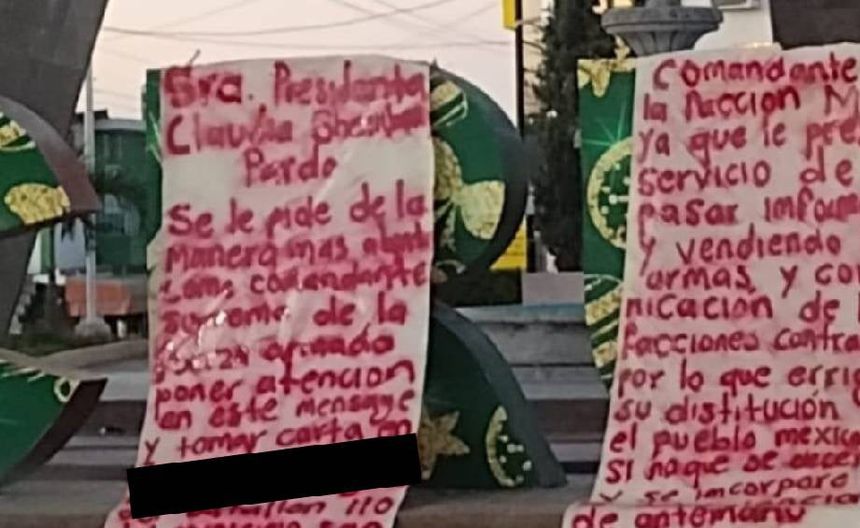 Sra. Presidenta
Claudia Sheinbaum
Pardo
Se le pide de la
manera mas atent
como comandante
suprema de la
fuerza armada
poner atencion
en este mensage
y tomar carta en
Comandante
la Faccion M
ya que le pre
servicio de
pasar infor
y vendiendo
armas y co
nicacion de
facciones contra
por lo que
su distitución
el pueblo mexic
si no que se
y se incorpara
de antemano